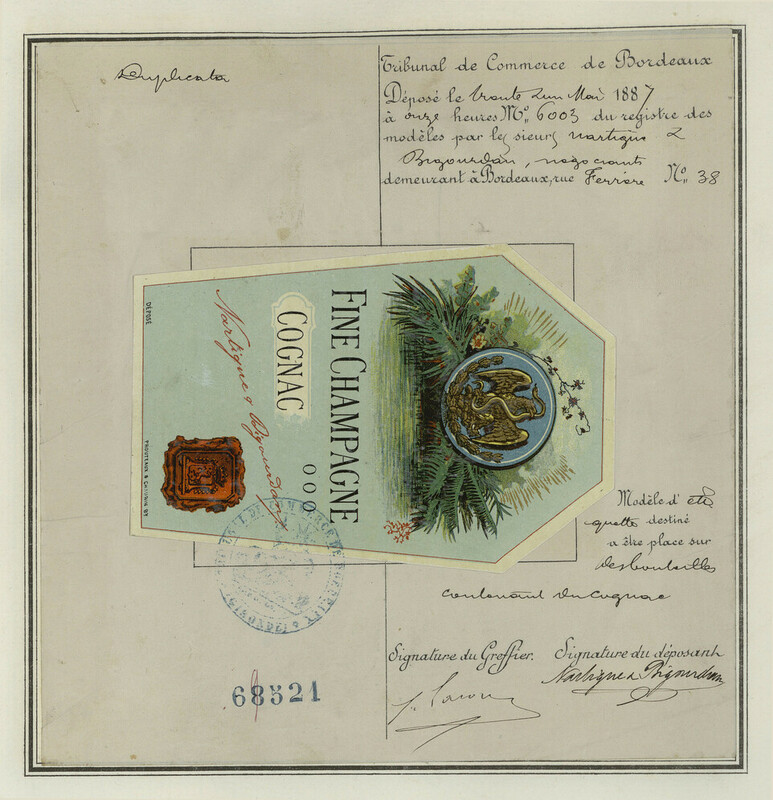 Duplicata
Tribunal de Commerce de Bordeaux
Déposé le trente un Mai 1887
à onze heures No. 6003 du registre des
modèles par les sieurs Nartigue &
Bigourdan, négociants
demeurant à Bordeaux, rue Ferrère No. 38
FINE CHAMPAGNE
COGNAC
000
Nartigue & Bigourdan
DÉPOSÉ
Modèle d'éti
quette destiné
a être place sur
des bouteilles
contenant du Cognac
Signature du Greffier.
Signature du déposant
Nartigue & Bigourdan
68521